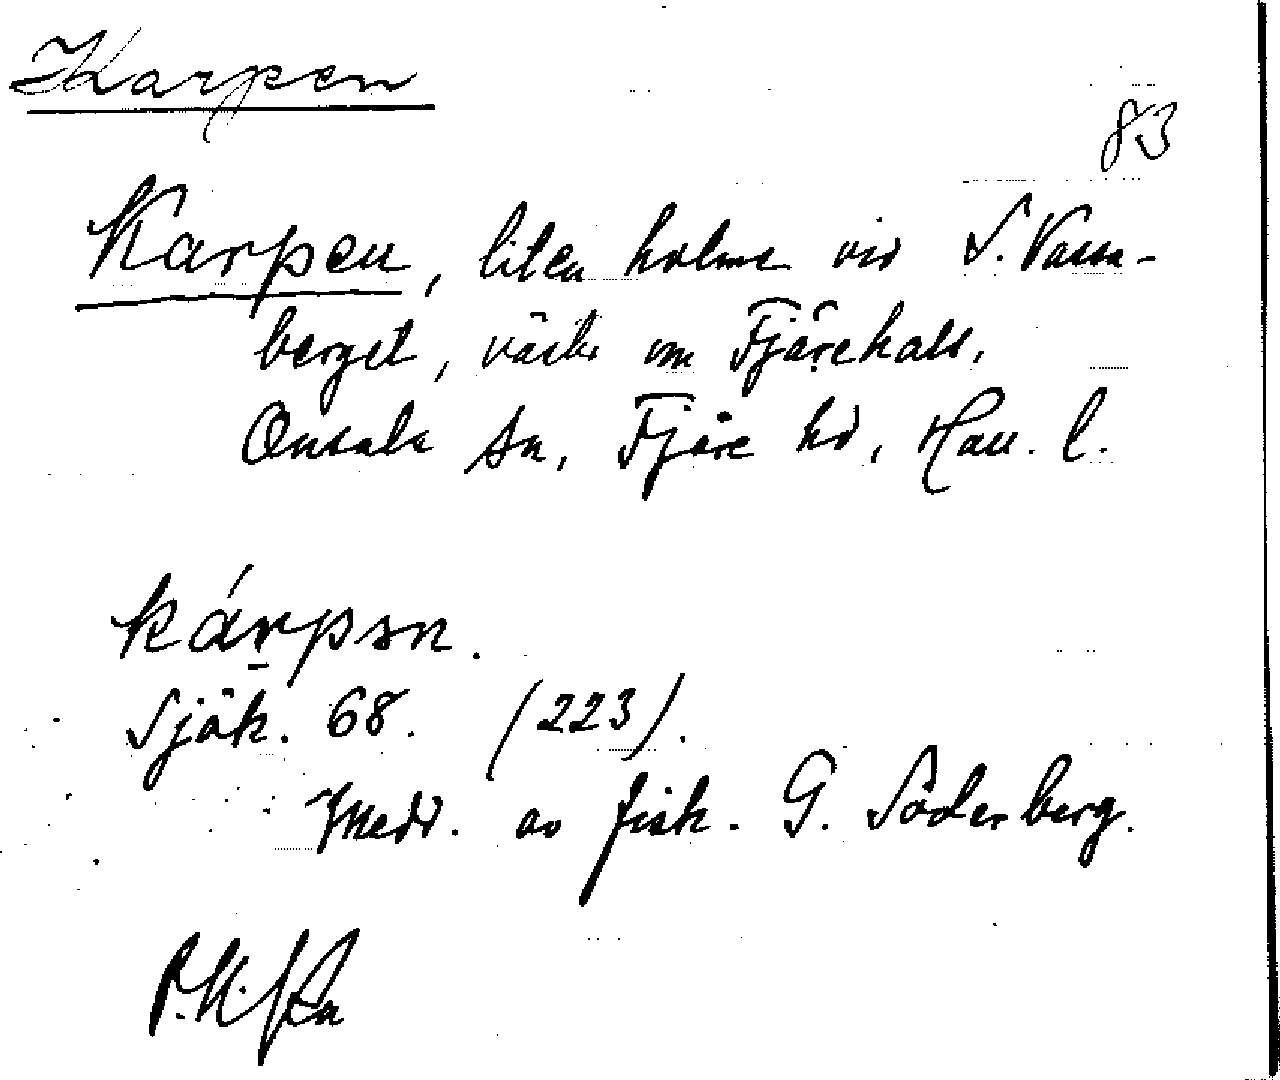 Karpen
83
Karpen, liten holme vid S.
berget, väster om Fjärehals,
Onsala sn, Fjäre hd, Hall. l.
kárpən.
Sjök. 68. (223).
Medd. av fisk. G. Söderberg.